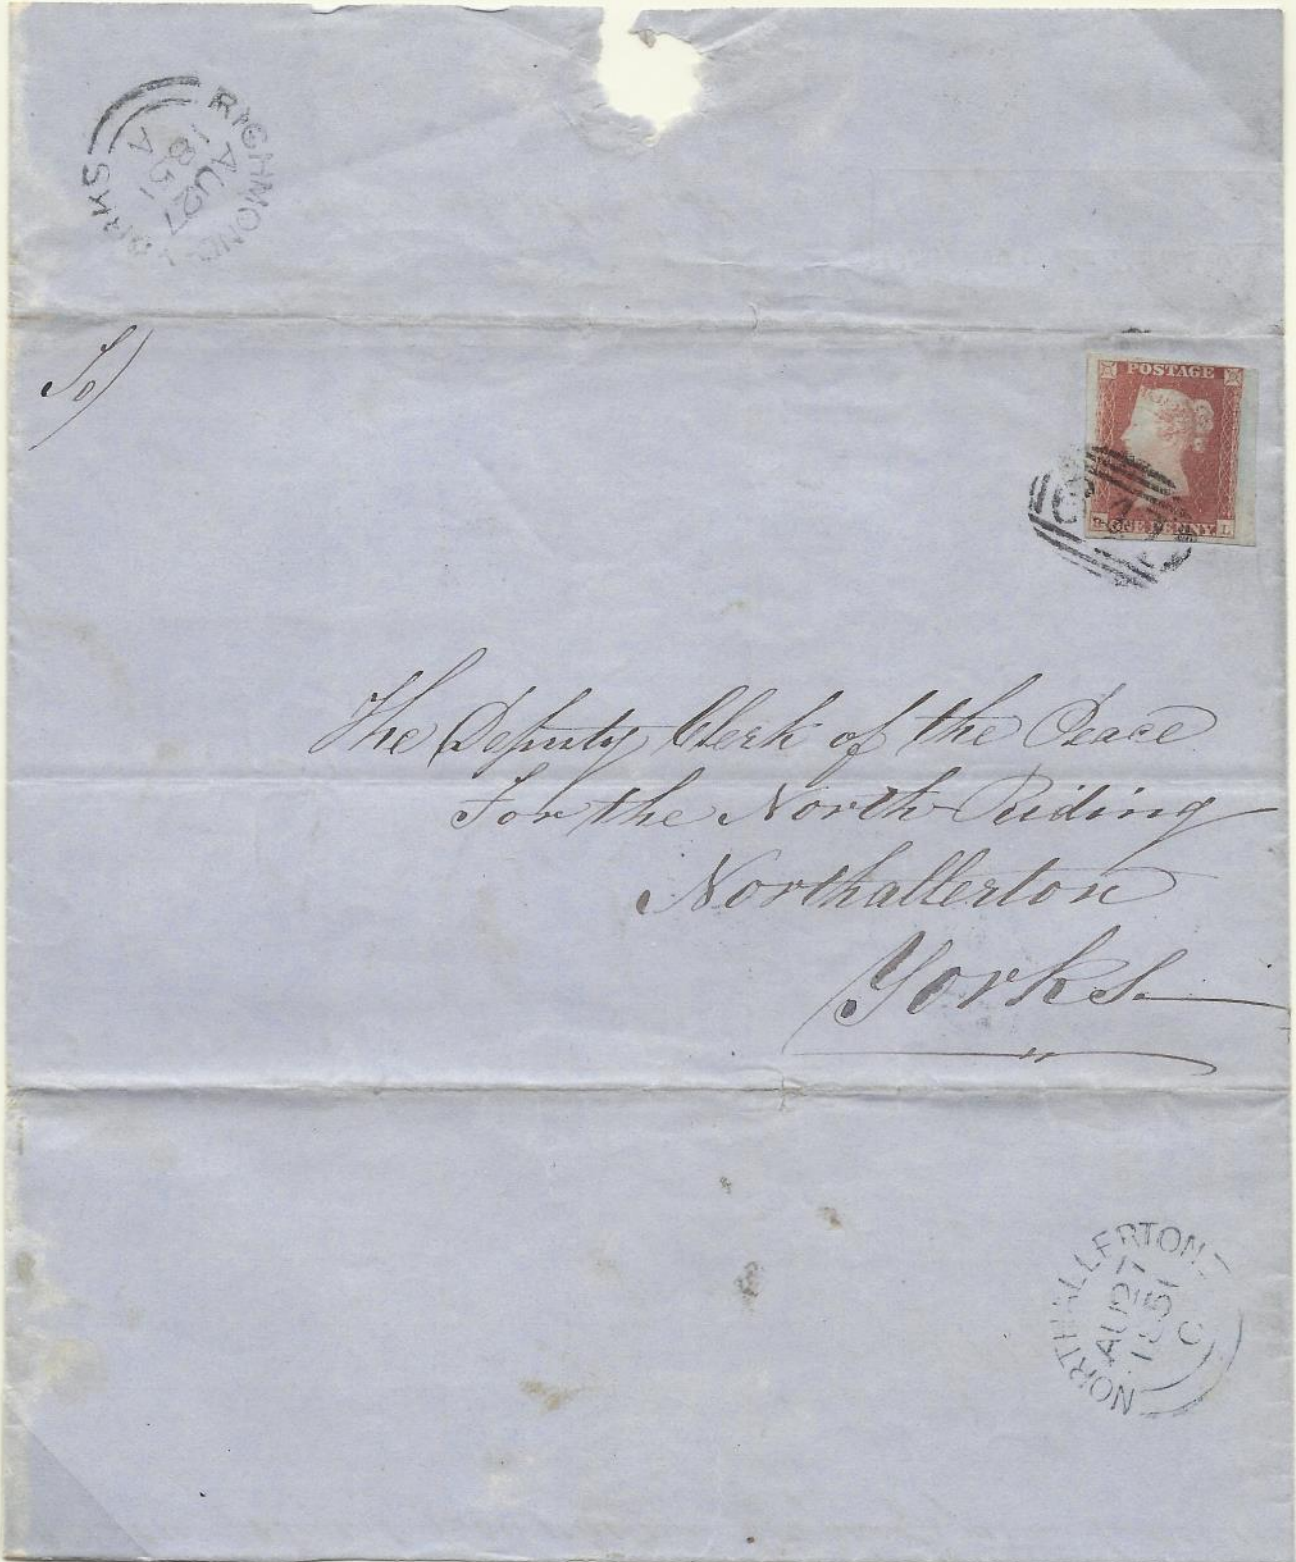 RICHMOND YORKS
A
AU27
1851
To)
POSTAGE
ONE PENNY
L
The Deputy Clerk of the Peace
For the North Riding
Northallerton
Yorks.
NORTHALLERTON
AU27
1851
C